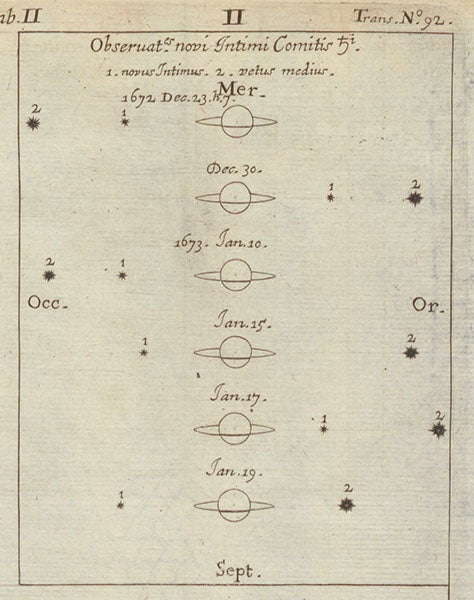 ab.II II Trans. No. 92.
Observat.s novi Intimi Comitis ♄i.
1. novus Intimus. 2. vetus medius.
Mer.
1672 Dec. 23. h. 7.
2 1
Dec. 30.
1 2
1673. Jan. 10.
2 1
Occ. Or.
Jan. 15.
1 2
Jan. 17.
1 2
Jan. 19.
1 2
Sept.